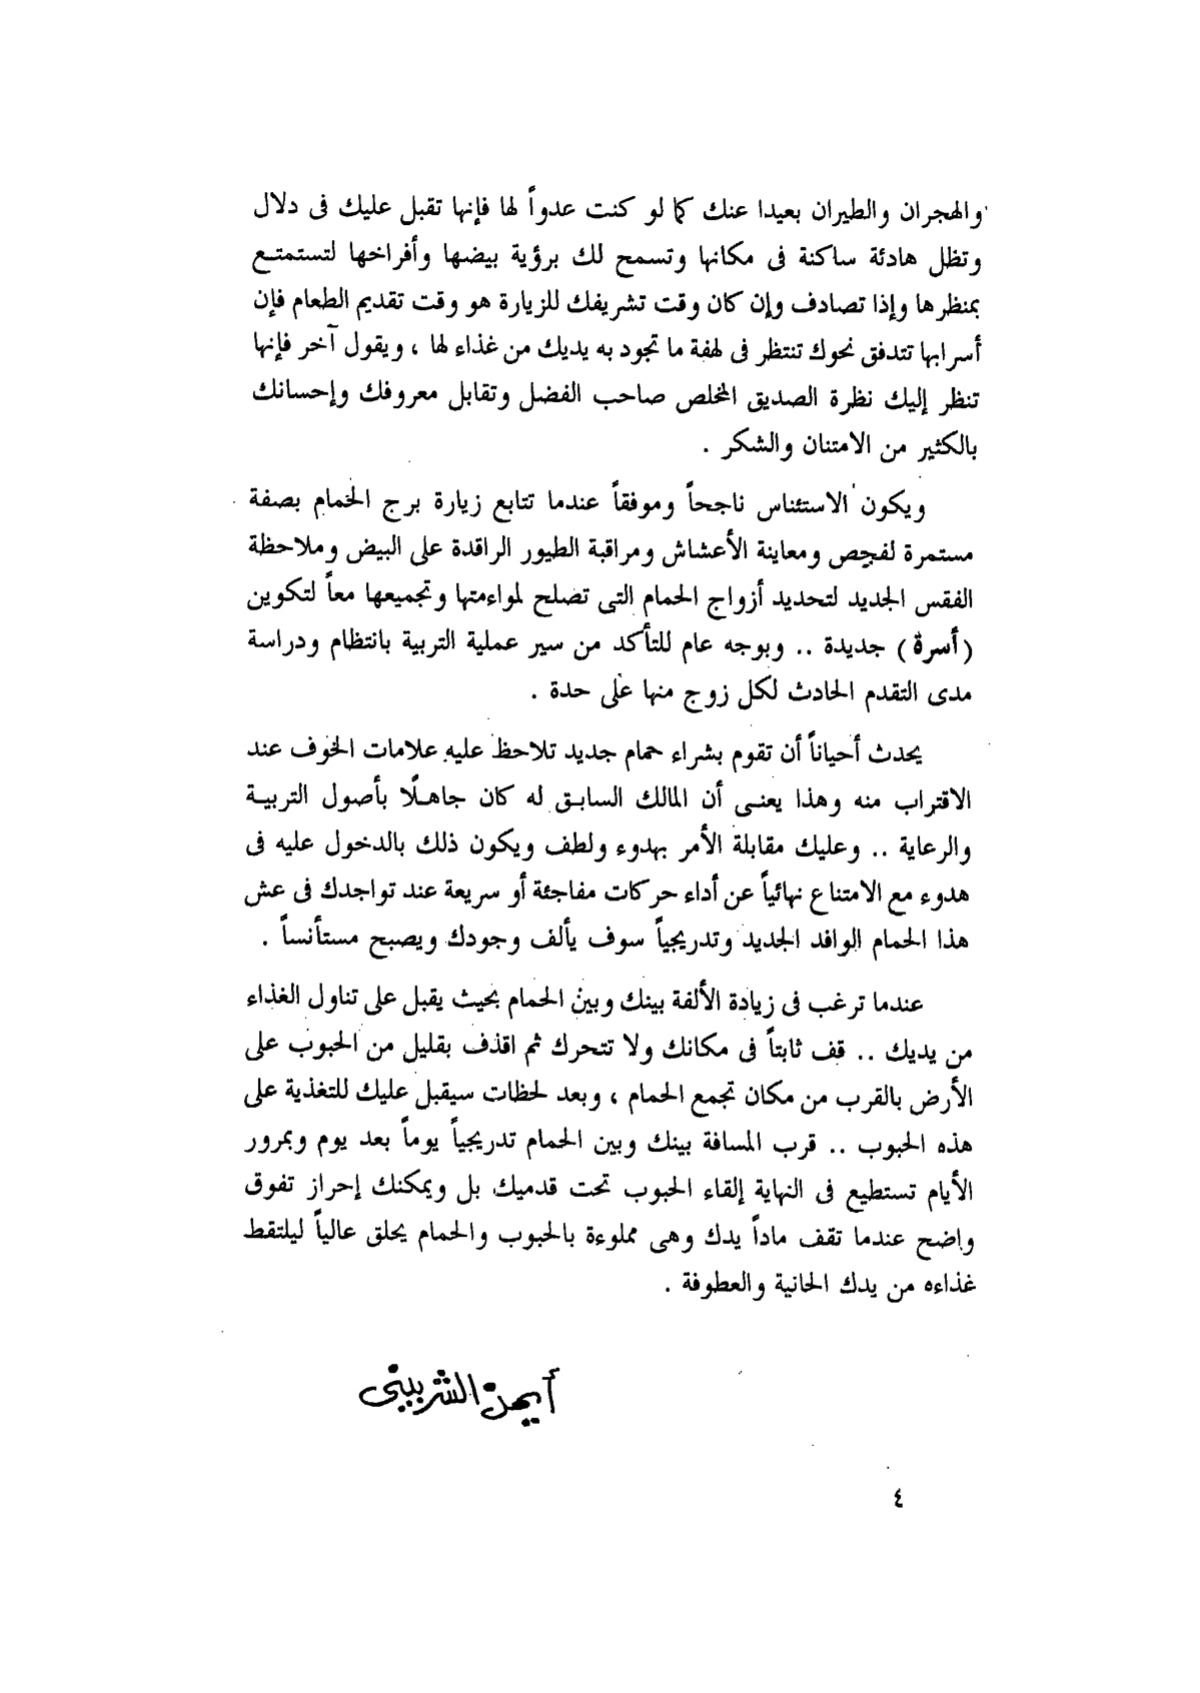 والهجران والطيران بعيدا عنك كما لو كنت عدواً لها فإنها تقبل عليك فى دلال
وتظل هادئة ساكنة فى مكانها وتسمح لك برؤية بيضها وأفراخها لتستمتع
بمنظرها وإذا تصادف وإن كان وقت تشريفك للزيارة هو وقت تقديم الطعام فإن
أسرابها تتدفق نحوك تنتظر فى لهفة ما تجود به يديك من غذاء لها ، ويقول آخر فإنها
تنظر إليك نظرة الصديق المخلص صاحب الفضل وتقابل معروفك وإحسانك
بالكثير من الامتنان والشكر .
ويكون الاستئناس ناجحاً وموفقاً عندما تتابع زيارة برج الحمام بصفة
مستمرة لفحص ومعاينة الأعشاش ومراقبة الطيور الراقدة على البيض وملاحظة
الفقس الجديد لتحديد أزواج الحمام التى تصلح لمواءمتها وتجميعها معاً لتكوين
(أسرة) جديدة .. وبوجه عام للتأكد من سير عملية التربية بانتظام ودراسة
مدى التقدم الحادث لكل زوج منها على حدة .
يحدث أحياناً أن تقوم بشراء حمام جديد تلاحظ عليه علامات الخوف عند
الاقتراب منه وهذا يعنى أن المالك السابق له كان جاهلًا بأصول التربية
والرعاية .. وعليك مقابلة الأمر بهدوء ولطف ويكون ذلك بالدخول عليه فى
هدوء مع الامتناع نهائياً عن أداء حركات مفاجئة أو سريعة عند تواجدك فى عش
هذا الحمام الوافد الجديد وتدريجياً سوف يألف وجودك ويصبح مستأنساً .
عندما ترغب فى زيادة الألفة بينك وبين الحمام بحيث يقبل على تناول الغذاء
من يديك .. قف ثابتاً فى مكانك ولا تتحرك ثم اقذف بقليل من الحبوب على
الأرض بالقرب من مكان تجمع الحمام ، وبعد لحظات سيقبل عليك للتغذية على
هذه الحبوب .. قرب المسافة بينك وبين الحمام تدريجياً يوماً بعد يوم وبمرور
الأيام تستطيع فى النهاية إلقاء الحبوب تحت قدميك بل ويمكنك إحراز تفوق
واضح عندما تقف ماداً يدك وهى مملوءة بالحبوب والحمام يحلق عالياً ليلتقط
غذاءه من يدك الحانية والعطوفة .
أيمن الشربينى
٤